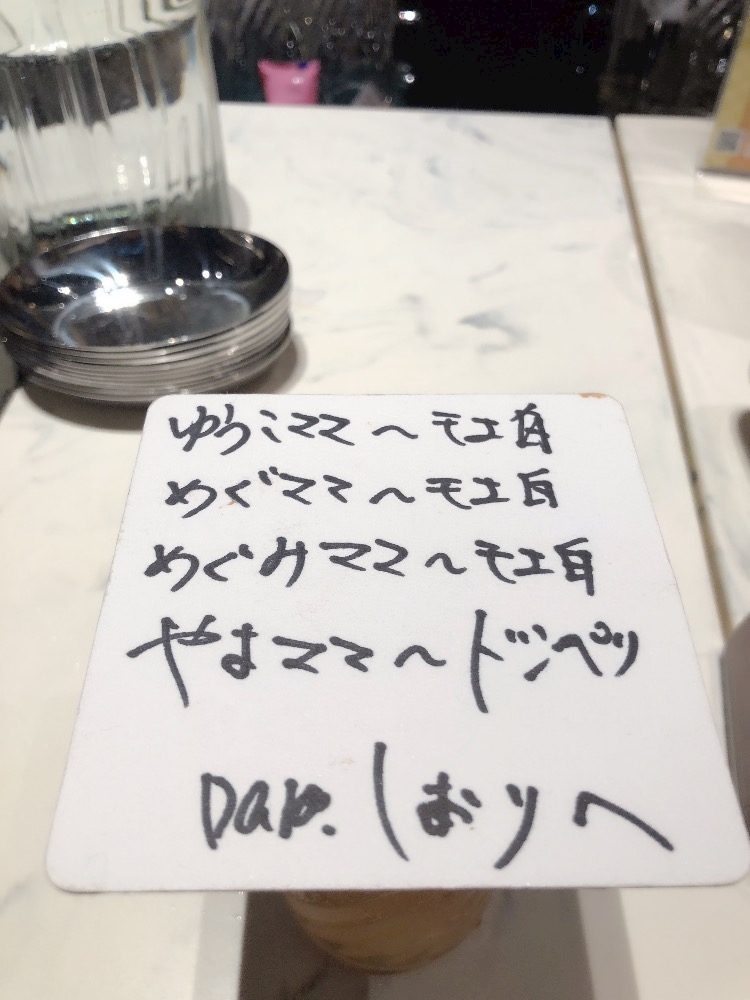 ゆうこママ～モエ白
めぐママ～モエ白
めぐみママ～モエ白
やまママ～ドンペリ
Dak. しおりへ